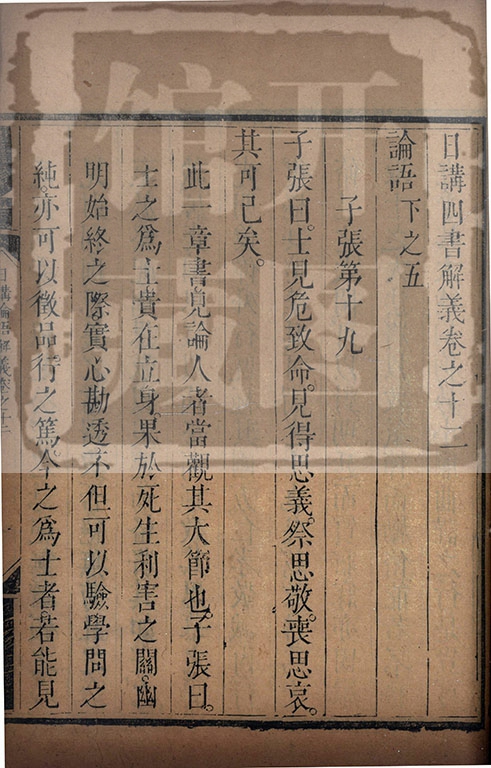 日講四書解義卷之十二
論語下之五
子張第十九
子張曰。士見危致命。見得思義。祭思敬。喪思哀。
其可已矣。
此一章書見論人者當觀其大節也。子張曰。
士之為士。貴在立身。果於死生利害之關。幽
明始終之際。實心勘透。不但可以驗學問之
純。亦可以徵品行之篤。今之為士者。若能見
日講論語解義卷之十二